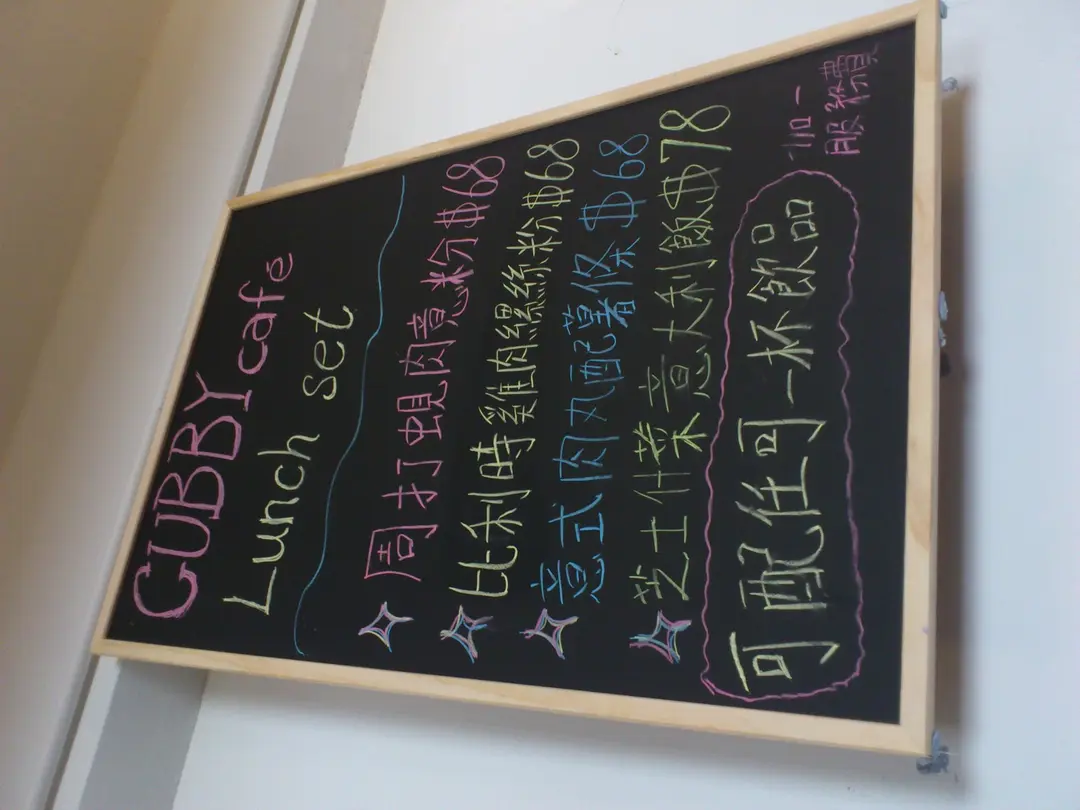 CUBBY café
Lunch set
周打蜆肉意粉$68
比利時雞肉縲絲粉$68
意式肉丸配薯條$68
芝士什菜意大利飯$78
可配任可一杯飲品
加一
服務費